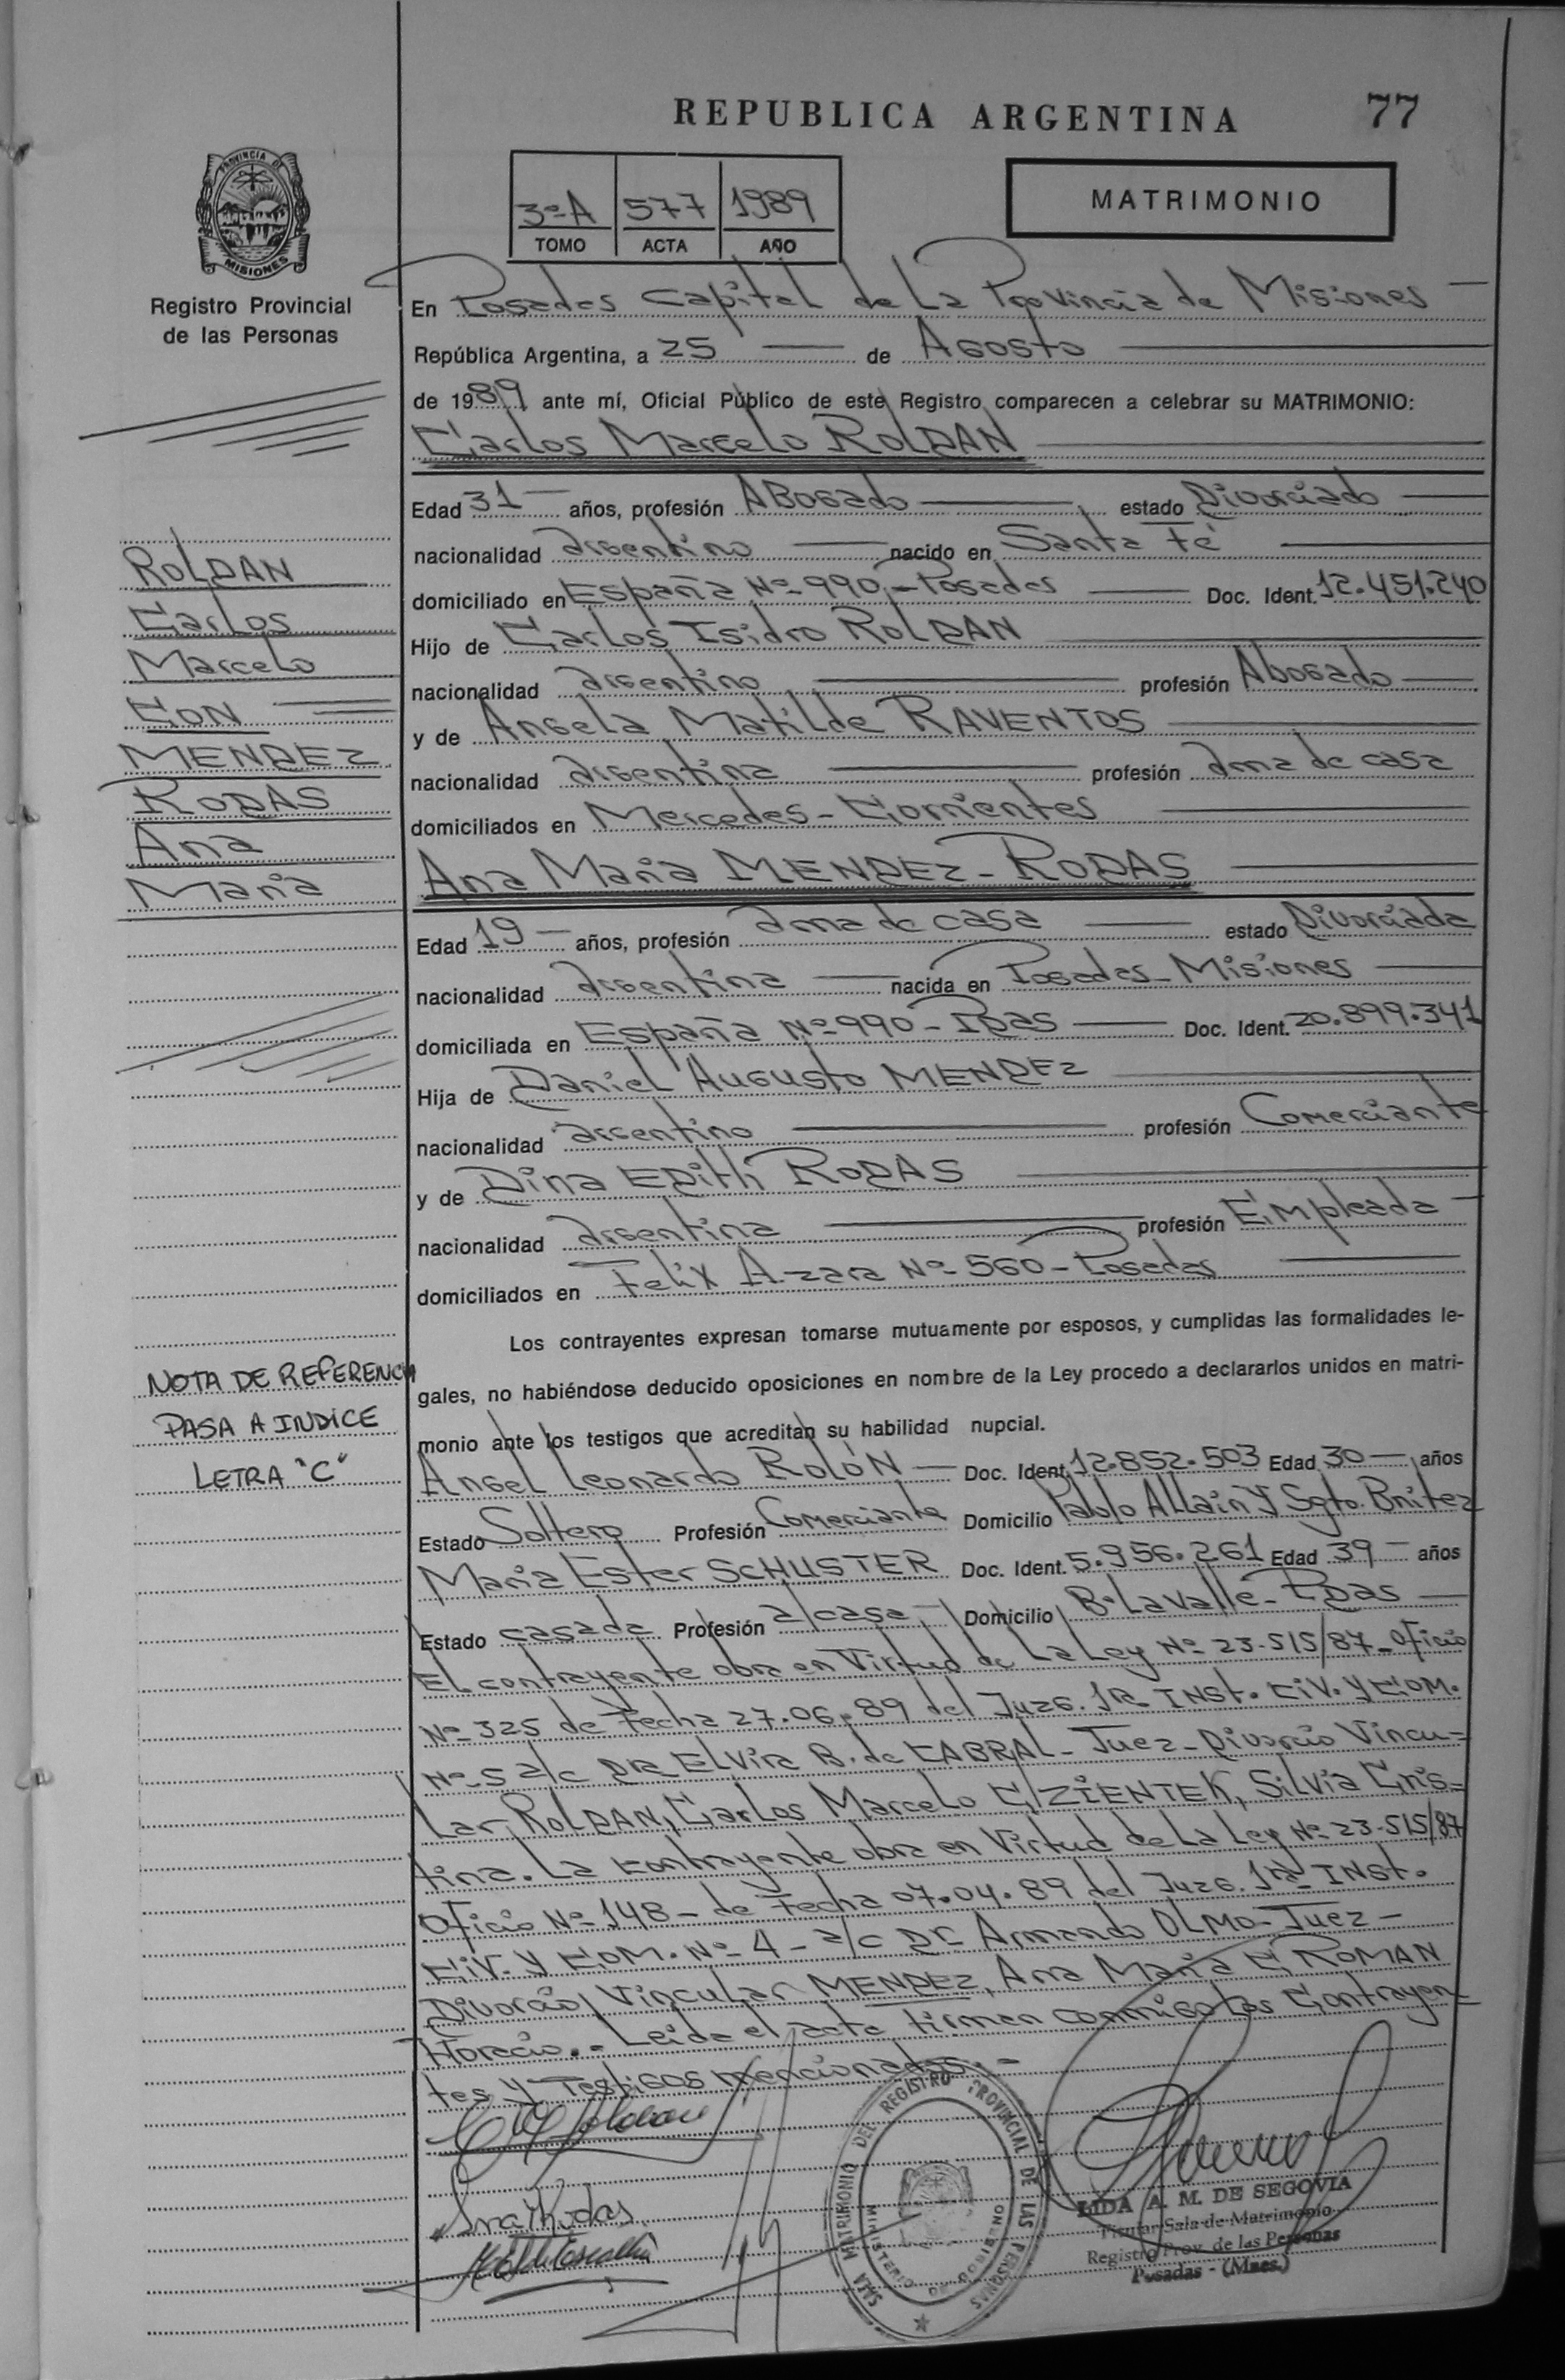 REPUBLICA ARGENTINA 77
PROVINCIA DE
MISIONES
Registro Provincial
de las Personas
3º A 577 1989
TOMO ACTA AÑO
MATRIMONIO
En Posadas Capital de La Provincia de Misiones
República Argentina, a 25 de Agosto
de 1989, ante mí, Oficial Público de este Registro comparecen a celebrar su MATRIMONIO:
Carlos Marcelo ROLDAN
Edad 31 años, profesión Abogado estado Divorciado
nacionalidad argentino nacido en Santa Fé
domiciliado en España Nº 990 - Posadas Doc. Ident. 12.451.240
Hijo de Carlos Isidro ROLDAN
nacionalidad argentino profesión Abogado
y de Angela Matilde RAVENTOS
nacionalidad argentina profesión ama de casa
domiciliados en Mercedes - Corrientes
Ana Maria MENDEZ - RODAS
Edad 19 años, profesión ama de casa estado Divorciada
nacionalidad argentina nacida en Posadas - Misiones
domiciliada en España Nº 990 - Pdas Doc. Ident. 20.899.341
Hija de Daniel Augusto MENDEZ
nacionalidad argentino profesión Comerciante
y de Dina Edith RODAS
nacionalidad argentina profesión Empleada
domiciliados en Felix Azara Nº 560 - Posadas
Los contrayentes expresan tomarse mutuamente por esposos, y cumplidas las formalidades le-
gales, no habiéndose deducido oposiciones en nombre de la Ley procedo a declararlos unidos en matri-
monio ante los testigos que acreditan su habilidad nupcial.
Angel Leonardo ROLÓN Doc. Ident. 12.852.503 Edad 30 años
Estado Soltero Profesión Comerciante Domicilio Pablo Allain y Sgto. Bnitez
Maria Ester SCHUSTER Doc. Ident. 5.956.261 Edad 39 años
Estado casada Profesión a/casa Domicilio B. Lavalle - Pdas
El contrayente obra en Virtud de La Ley Nº 23.515/87 - Oficio
Nº 325 de Fecha 27.06.89 del Juzg. 1ra INST. CIV. Y COM.
Nº 5 a/c DRA ELVira B. de CABRAL - Juez - Divorcio Vincu=
Lar, ROLDAN, Carlos Marcelo C/ZIENTEK, Silvia Cris=
tina. La contrayente obra en Virtud de La Ley Nº 23.515/87
Oficio Nº 148 - de Fecha 07.04.89 del Juzg. 1ra INST.
CIV. Y COM. Nº 4 - a/c Dr. Armando OLMO - Juez -
Divorcio Vincular MENDEZ, Ana Maria C/ ROMAN
Horacio. - Leida el acta firman conmigo Los Contrayen
tes y Testigos mencionados. -
ROLDAN
Carlos
Marcelo
CON
MENDEZ
RODAS
Ana
Maria
NOTA DE REFERENCIA
PASA A INDICE
LETRA "C"
Ana Rodas
SALA MATRIMONIO DEL REGISTRO PROVINCIAL DE LAS PERSONAS
MINISTERIO DE GOBIERNO
LIDA A. M. DE SEGOVIA
Titular Sala de Matrimonio
Registro Prov. de las Personas
Posadas - (Mnes.)